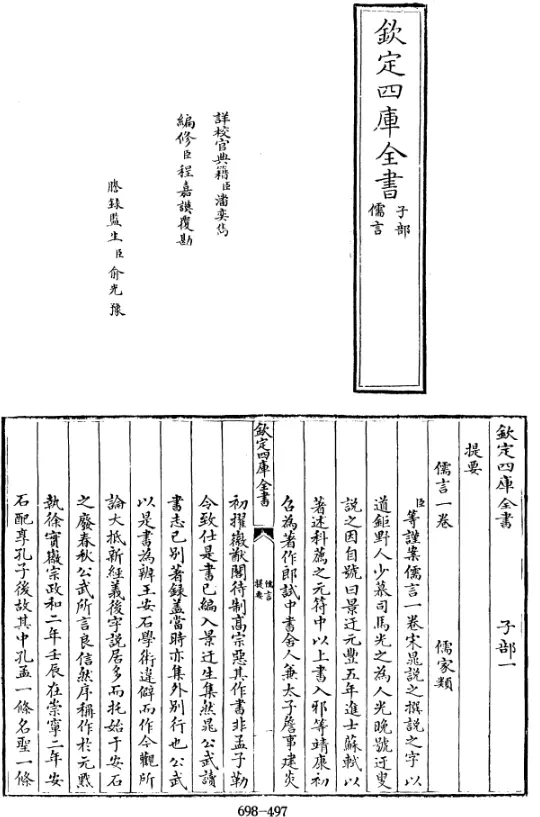 欽定四庫全書
子部
儒言
詳校官典籍臣潘奕雋
編修臣程嘉謨覆勘
謄錄監生臣俞光豫
欽定四庫全書 子部一
提要
儒言一卷 儒家類
臣等謹案儒言一卷宋晁說之撰說之字以
道鉅野人少慕司馬光之為人光晚號迂叟
說之因自號曰景迂元豐五年進士蘇軾以
著述科薦之元符中以上書入邪等靖康初
召為著作郎試中書舍人兼太子詹事建炎
欽定四庫全書
儒言
提要
初擢徽猷閣待制高宗惡其作書非孟子勒
令致仕是書已編入景迂生集然晁公武讀
書志已別著録蓋當時亦集外別行也公武
以是書為辨王安石學術違僻而作今觀所
論大抵新經義後字說居多而托始于安石
之廢春秋公武所言良信然序稱作於元黓
執徐實徽宗政和二年壬辰在崇寧二年安
石配享孔子後故其中孔孟一條名聖一條
698-497